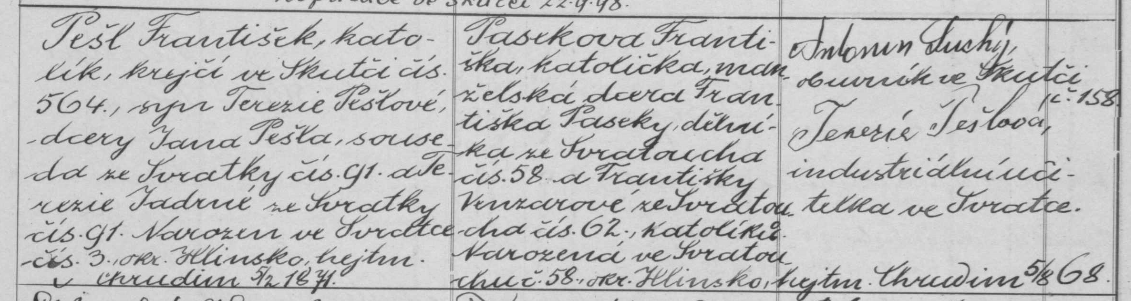 ve Skutči 22.9.98.
Pešl František, kato-
lík, krejčí ve Skutči čís.
564., syn Terezie Pešlové,
dcery Jana Pešla, souse-
da ze Svratky čís. 91. a Te-
rezie Jadrné ze Svratky
čís. 91. Narozen ve Svratce
čís. 3., okr. Hlinsko, hejtm.
Chrudim 5/2 1871.
Pasekova Franti-
ška, katolička, man-
želská dcera Fran-
tiška Paseky, dělní-
ka ze Svratoucha
čís. 58. a Františky
Venzarové ze Svratou
cha čís. 62., katolíků.
Narozená ve Svratou
chu č. 58., okr. Hlinsko, hejtm. Chrudim 5/8 68.
Antonín Suchý,
obuvník ve Skutči
č. 158.
Terezie Pešlova,
industriální uči-
telka ve Svratce.